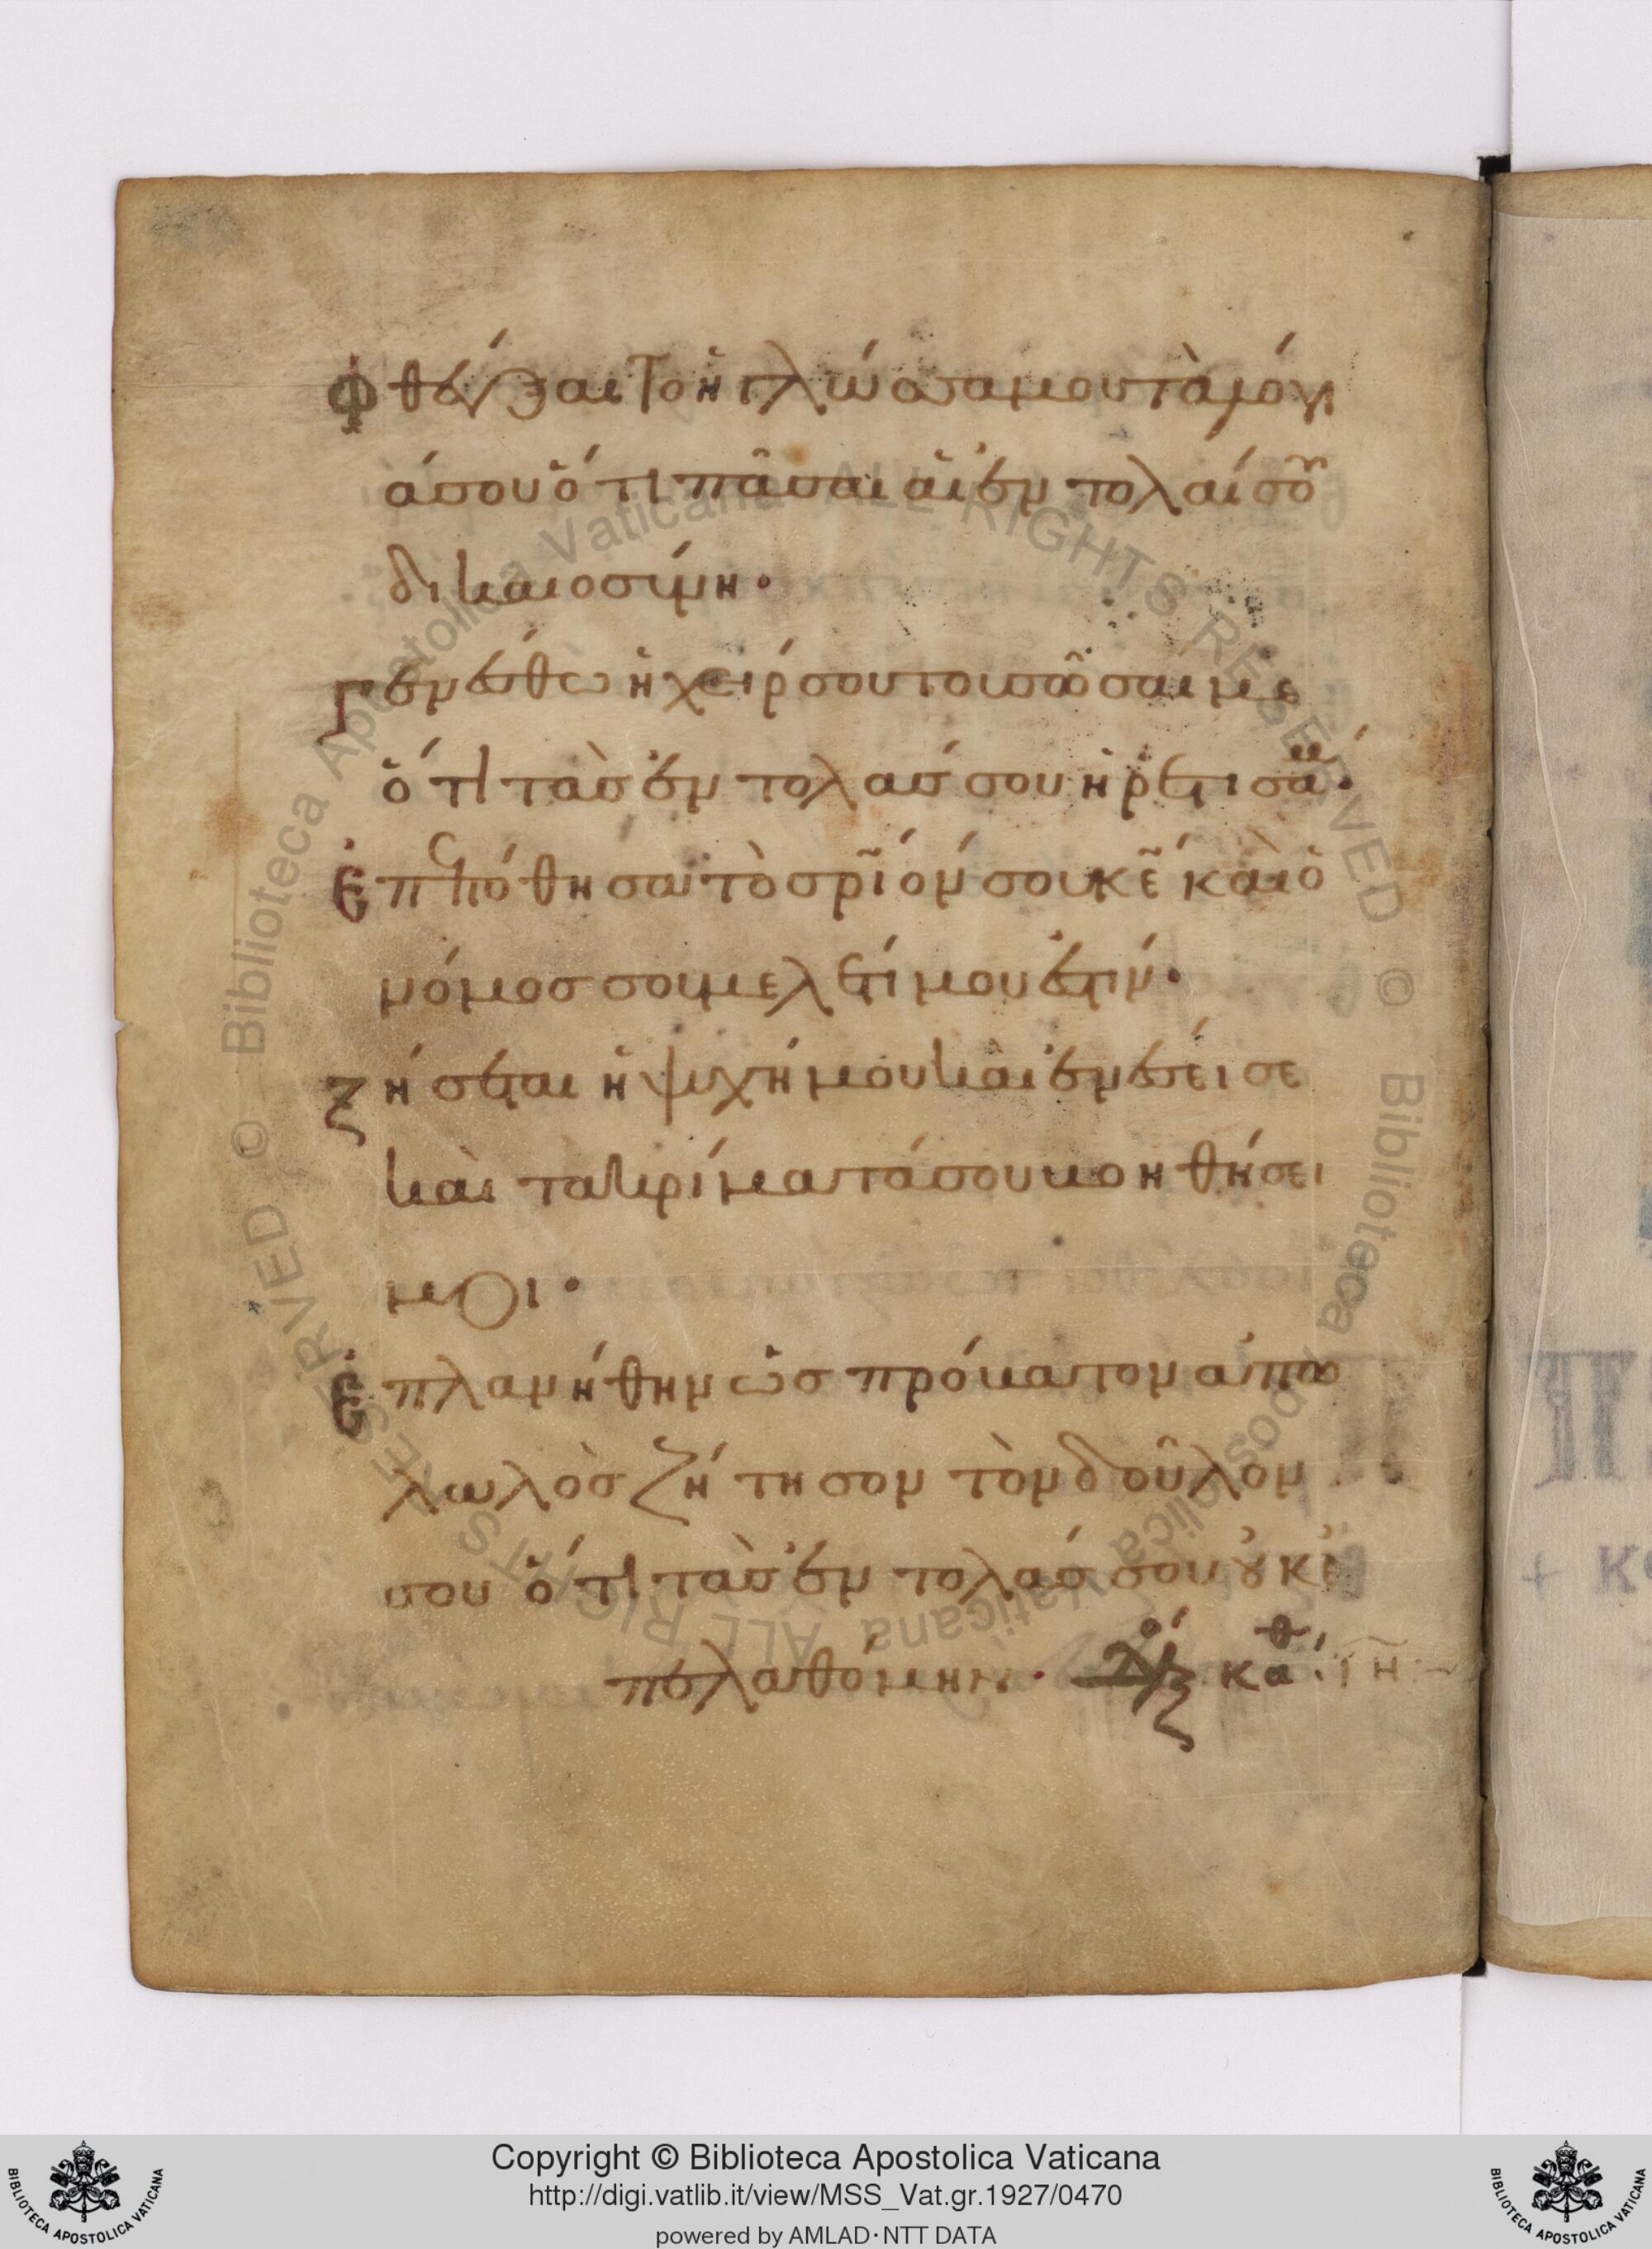 Φθέγξαιτο ἡ γλώσσα μου τὰ λόγι
ά σου ὅτι πᾶσαι αἱ ἐντολαί σου
δικαιοσύνη·
Γενέσθω ἡ χείρ σου τοῦ σῶσαί με
ὅτι τὰς ἐντολάς σου ἡρετισάμην·
Ἐπεπόθησα τὸ σρῖόν σου κε̃ καὶ ὁ
νόμος σου μελέτη μου ἐστίν·
Ζήσεται ἡ ψυχή μου καὶ ἐνέσει σε
καὶ τα κρίματά σου βοηθήσει
μοι·
Ἐπλανήθην ὡς πρόβατον ἀπο
λωλὸς ζήτησον τὸν δοῦλον
σου ὅτι τὰς ἐντολάς σου οὐκ ἐ
πελαθόμην· καθ ιη
Copyright © Biblioteca Apostolica Vaticana
http://digi.vatlib.it/view/MSS_Vat.gr.1927/0470
powered by AMLAD·NTT DATA